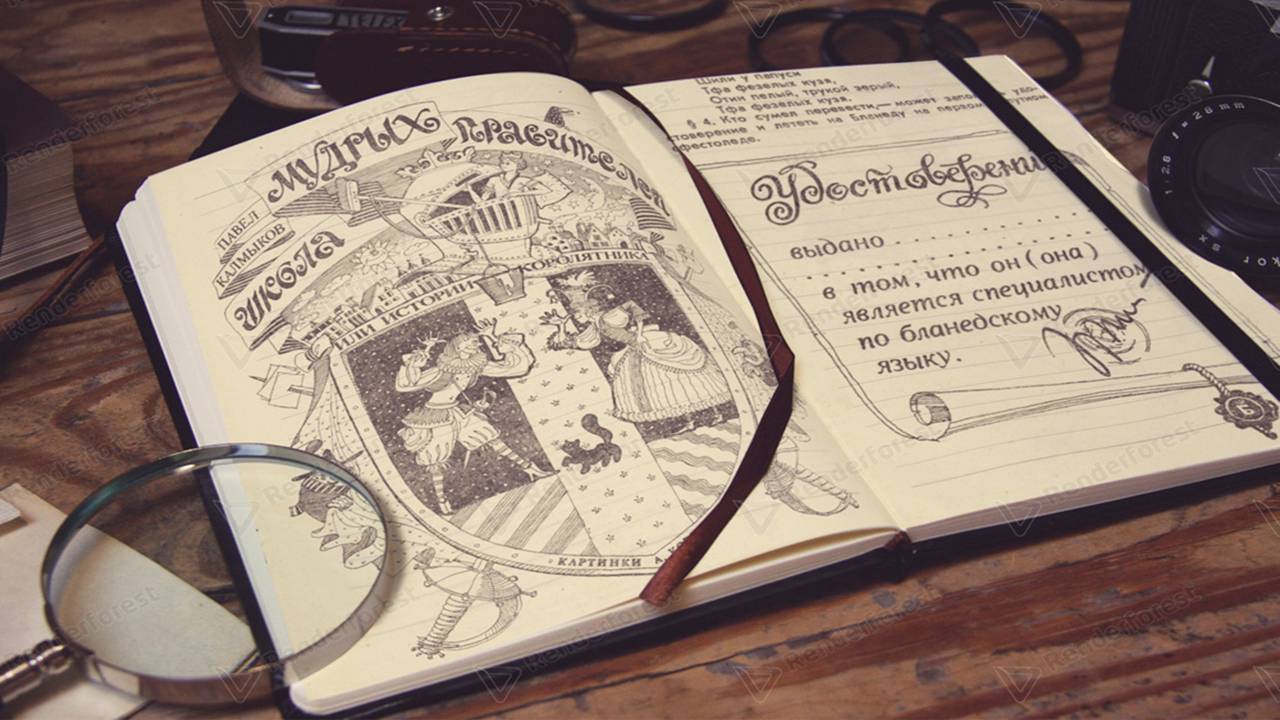 ПАВЕЛ
КАЛМЫКОВ
ШКОЛА
МУДРЫХ
ПРАВИТЕЛЕЙ
ИЛИ ИСТОРИИ
КОРОЛЯТНИКА
КАРТИНКИ
Шили у папуси
Тфа фезелых кузя,
Отин пелый, трукой зерый,
Тфа фезелых кузя.
§ 4. Кто сумел перевести,— может
и лететь на Бланеду на первом
фестоледе.
Удостоверение
выдано . . . . . . . . . . . . . .
. . . . . . . . . . . . . . . . . . . .
в том, что он (она)
является специалистом
по бланедскому
языку.
Б
KOT
1:2.8 f=28mm
Renderforest